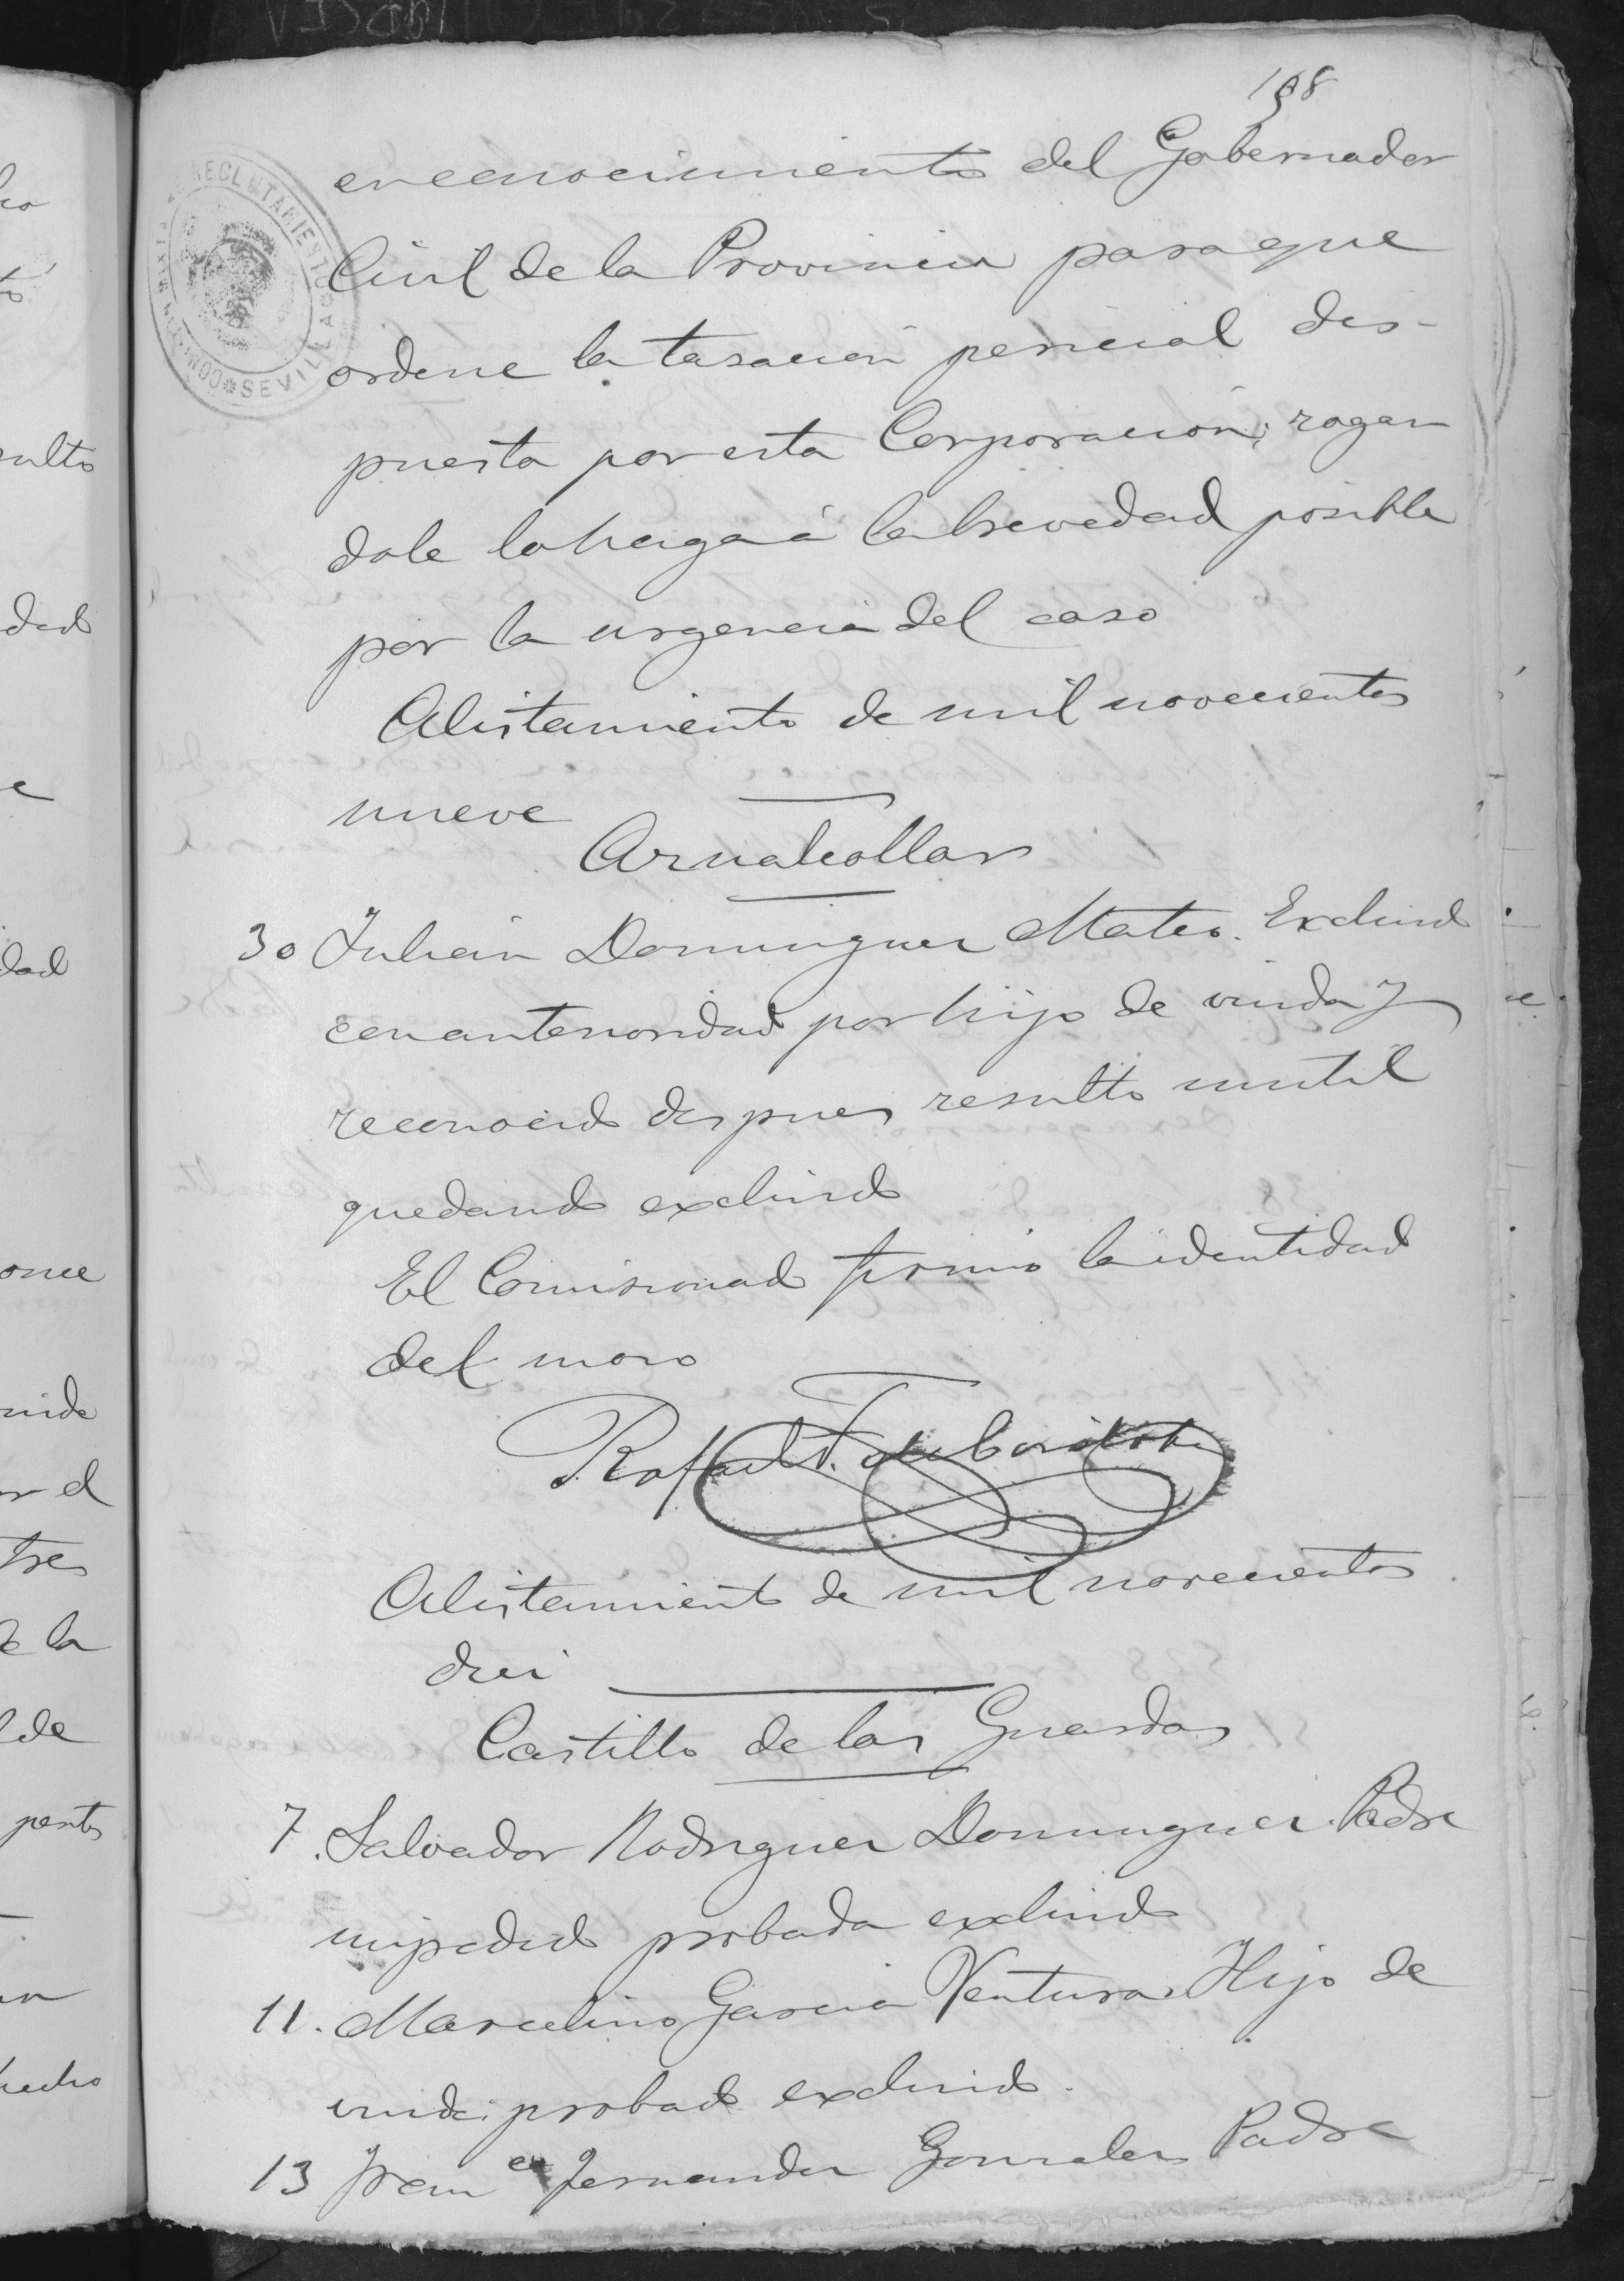 198
en conocimiento del Gobernador
Civil de la Provincia para que
ordene la tasacion pericial dis-
puesta por esta Corporación, rogan
dole lo haga á la brevedad posible
por la urgencia del caso
Alistamiento de mil novecientos
nueve
Aznalcollar
30 Julian Dominguez Mateo. Excluido
con anterioridad por hijo de viuda y
reconocido despues resulto inutil
quedando excluido
El Comisionado firmó la identidad
del mozo
Rafael F. de Cordoba
Alistamiento de mil novecientos
diez
Castillo de las Guardas
7. Salvador Rodriguez Dominguez. Padre
impedido probada excluido
11. Marcelino Garcia Ventura. Hijo de
viuda probado excluido.
13 Franco Fernandez Gonzalez Padre
COMISION MIXTA DE RECLUTAMIENTO
SEVILLA